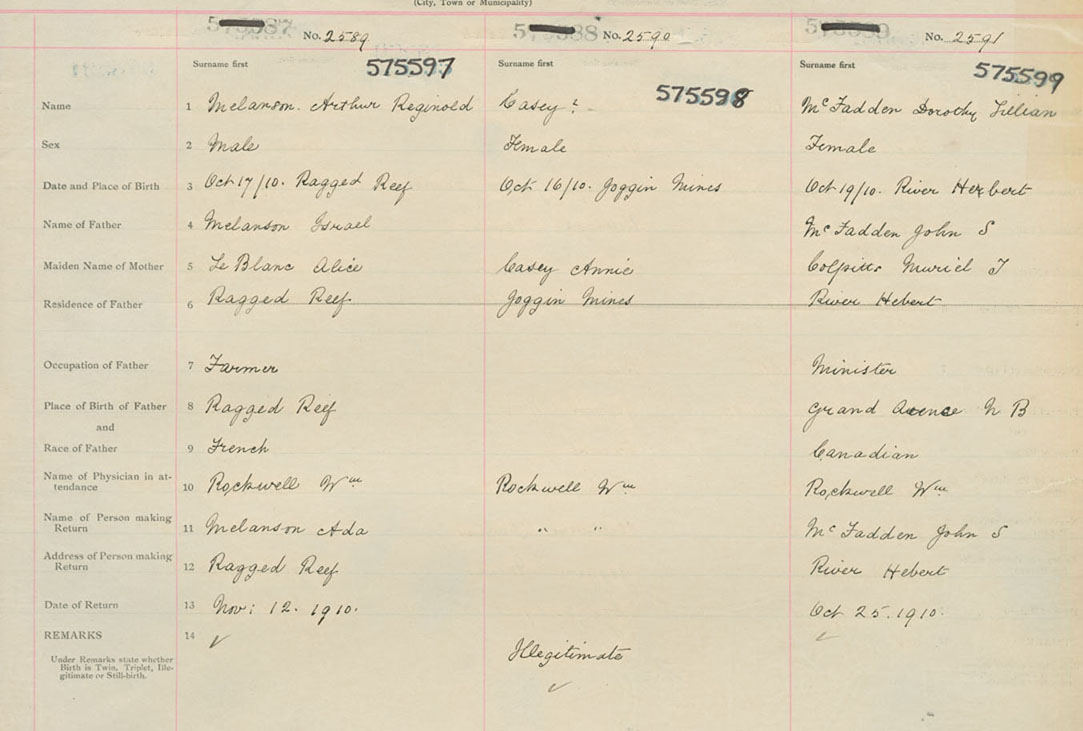 (City, Town or Municipality)
No. 2589 No. 2590 No. 2591
Surname first 575597 Surname first 575598 Surname first 575599
Name 1 Melanson. Arthur Reginold Casey ? McFadden Dorothy Lillian
Sex 2 Male Female Female
Date and Place of Birth 3 Oct 17/10. Ragged Reef Oct 16/10. Joggin Mines Oct 19/10. River Herbert
Name of Father 4 Melanson Israel McFadden John S
Maiden Name of Mother 5 Le Blanc Alice Casey Annie Colpitts Muriel J
Residence of Father 6 Ragged Reef Joggin Mines River Hebert
Occupation of Father 7 Farmer Minister
Place of Birth of Father 8 Ragged Reef Grand N B
and
Race of Father 9 French Canadian
Name of Physician in at-
tendance 10 Rockwell Wm Rockwell Wm Rockwell Wm
Name of Person making
Return 11 Melanson Ada " " McFadden John S
Address of Person making
Return 12 Ragged Reef River Hebert
Date of Return 13 Nov: 12. 1910. Oct 25. 1910.
REMARKS 14 ✓ Illegitimate ✓
Under Remarks state whether
Birth is Twin, Triplet, Ille-
gitimate or Still-birth. ✓